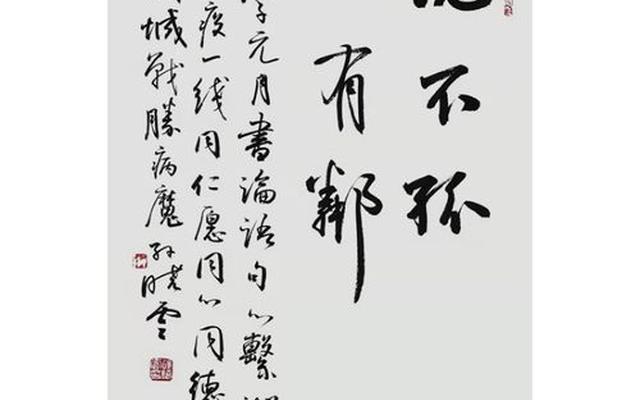 不孤
有鄰
子元月書論語句心繫
疫一线同仁愿同心同德
城戰勝病魔 孙晓雲